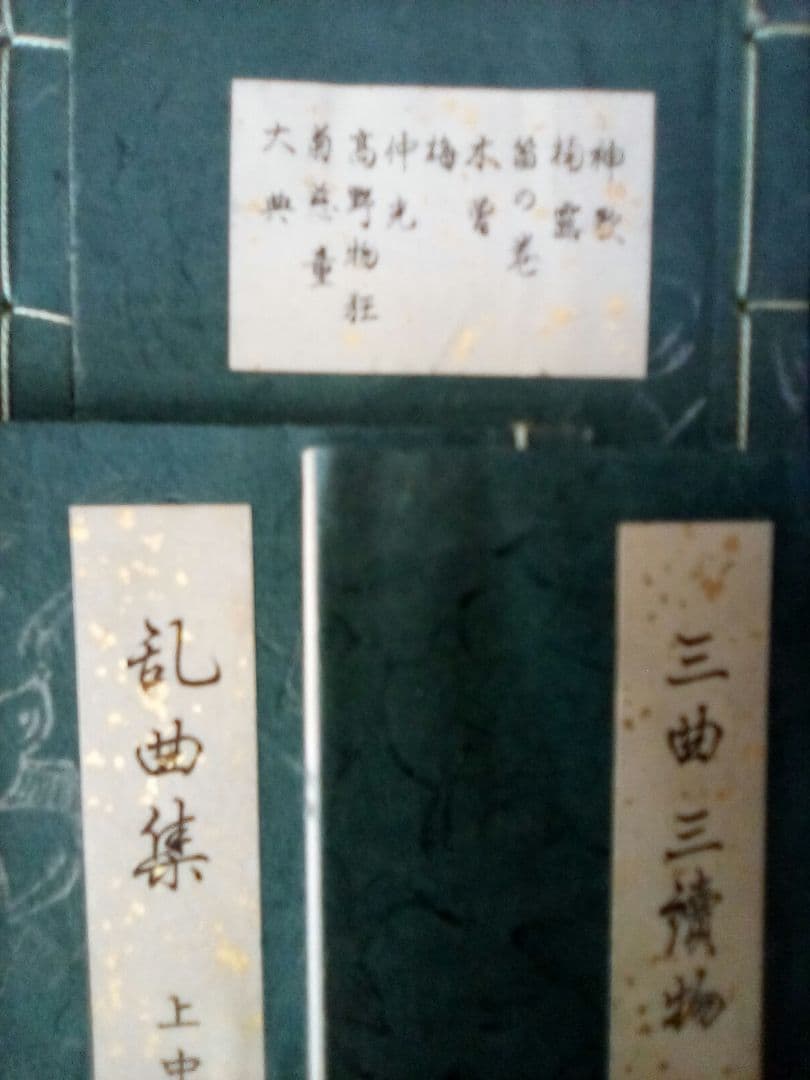 神歌
楠露
笛の巻
木曽
梅
仲光
高野物狂
菊慈童
大典
三曲三讀物
乱曲集 上中